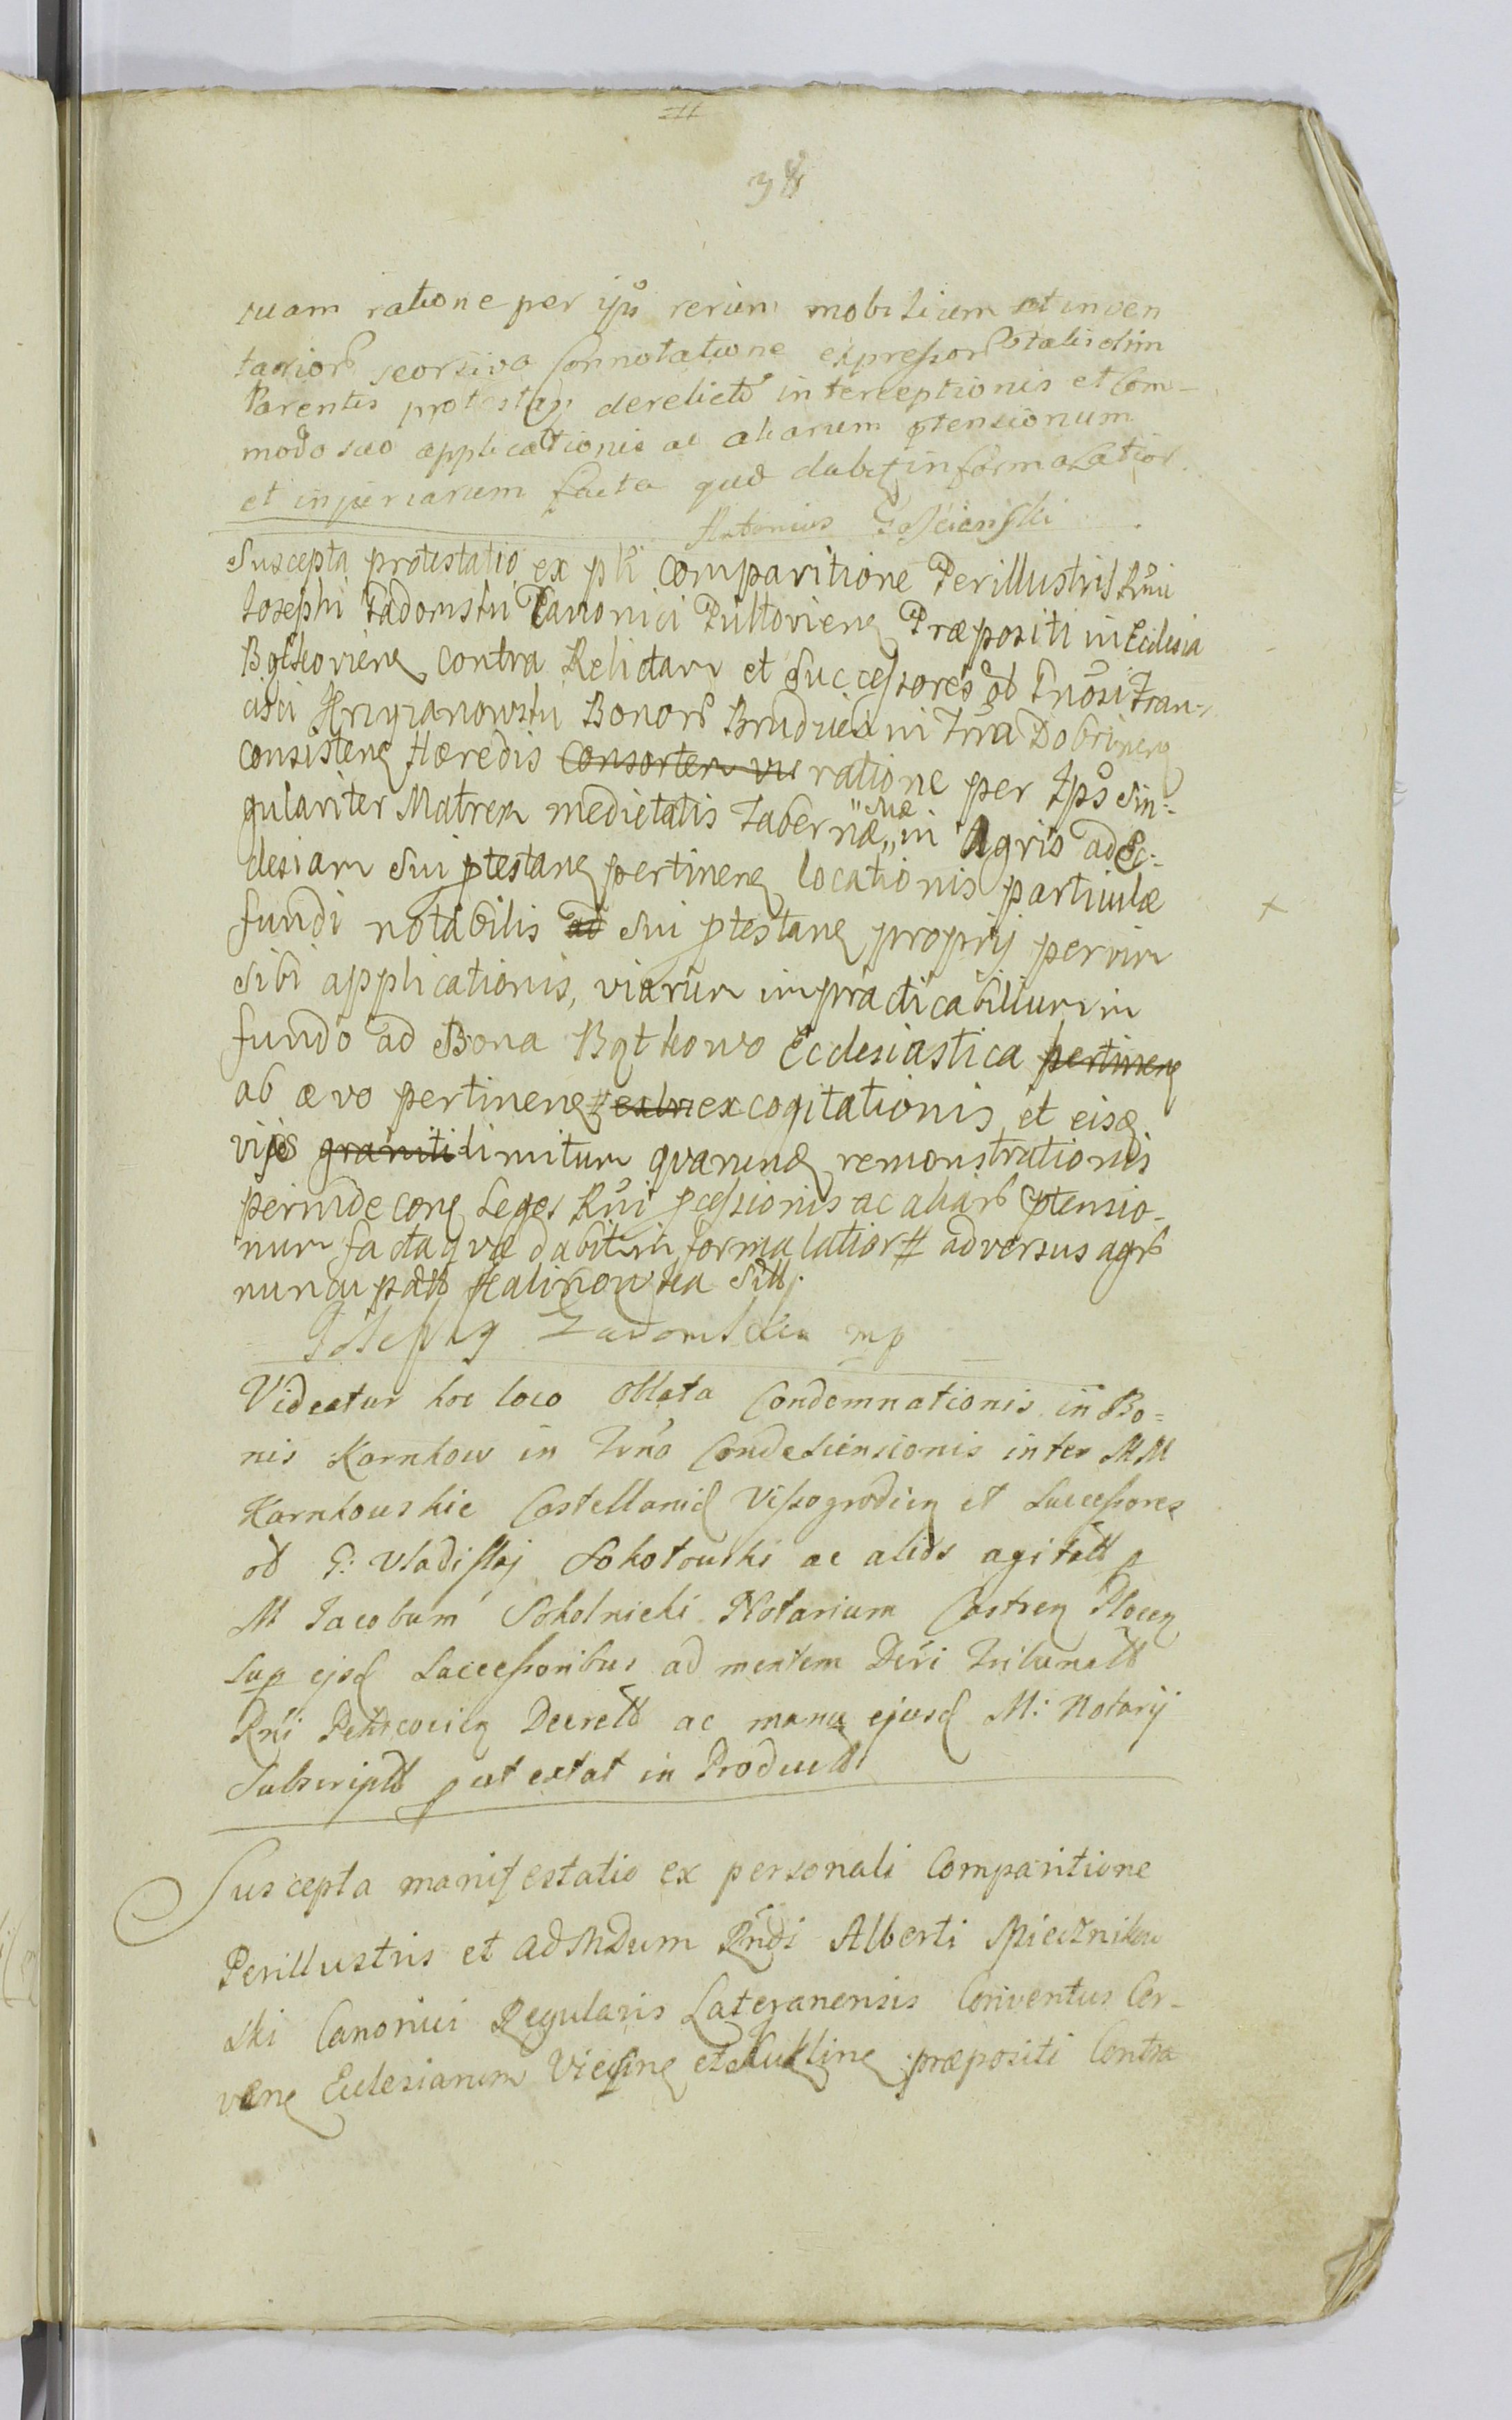 suam ratione per ips rerum mobilium et inven
tarior seorsiva Connotatione expressor talis olim
Parentis protestan derelict interceptionis et Com-
modo suo applicationis ac aliarum ptensionum
et injuriarum facta quæ dabit in forma latior.
Antonius Gościański
Suscepta protestatio ex pli comparitione Perillustris Rndi
Josephi Zadomski Canonici Pultovien Præpositi in Ecclesia
Bąthovien contra Relictam et Successores ol Gnosi Fran-
cisci Chrzanowski Bonor Brudzień in Trra Dobrinen
consisten Hæredis Consortem vir ratione per Ips Sin:
gulariter Matrem medietatis Tabernæ „suæ„ in Agris ad Ec:
clesiam Sui ptestan pertinen locationis particulæ
fundi notabilis ad sui ptestan proprij per vim
sibi applicationis, viarum impracticabilium in
fundo ad Bona Bąthowo Ecclesiastica pertinen
ab ævo pertinen # extri excogitationis et eisd
vijs graniti limitum quarund remonstrationis
perinde con Leges Rni pcessionis ac aliar ptensio-
num facta quæ dabit in forma latior # adversus agr
nuncupatt Kalinowska Sitt.
Josephus Zadomski mp
Videatur hoc loco Oblata Condemnationis in Bo=
nis Karnkow in Trno Condescensionis inter MM
Karnkowskie Castellanid Vissogrodien et Successores
ol G: Vladislaj Sokołowski ac alios agitatt p
M Jacobum Sokolnicki Notarium Castren Plocen
sup ejsd Successoribus ad mentem Decri Tribunatt
Rni Petricovien Decrett ac manu ejusd M: Notarij
Subscriptt put extat in Productt
Suscepta manifestatio ex personali Comparitione
Perillustris et admdum Rndi Alberti Miecznikow
ski Canonici Regularis Lateranensis Conventus Cer-
ven Ecclesiarum et Kuklin præpositi Contra